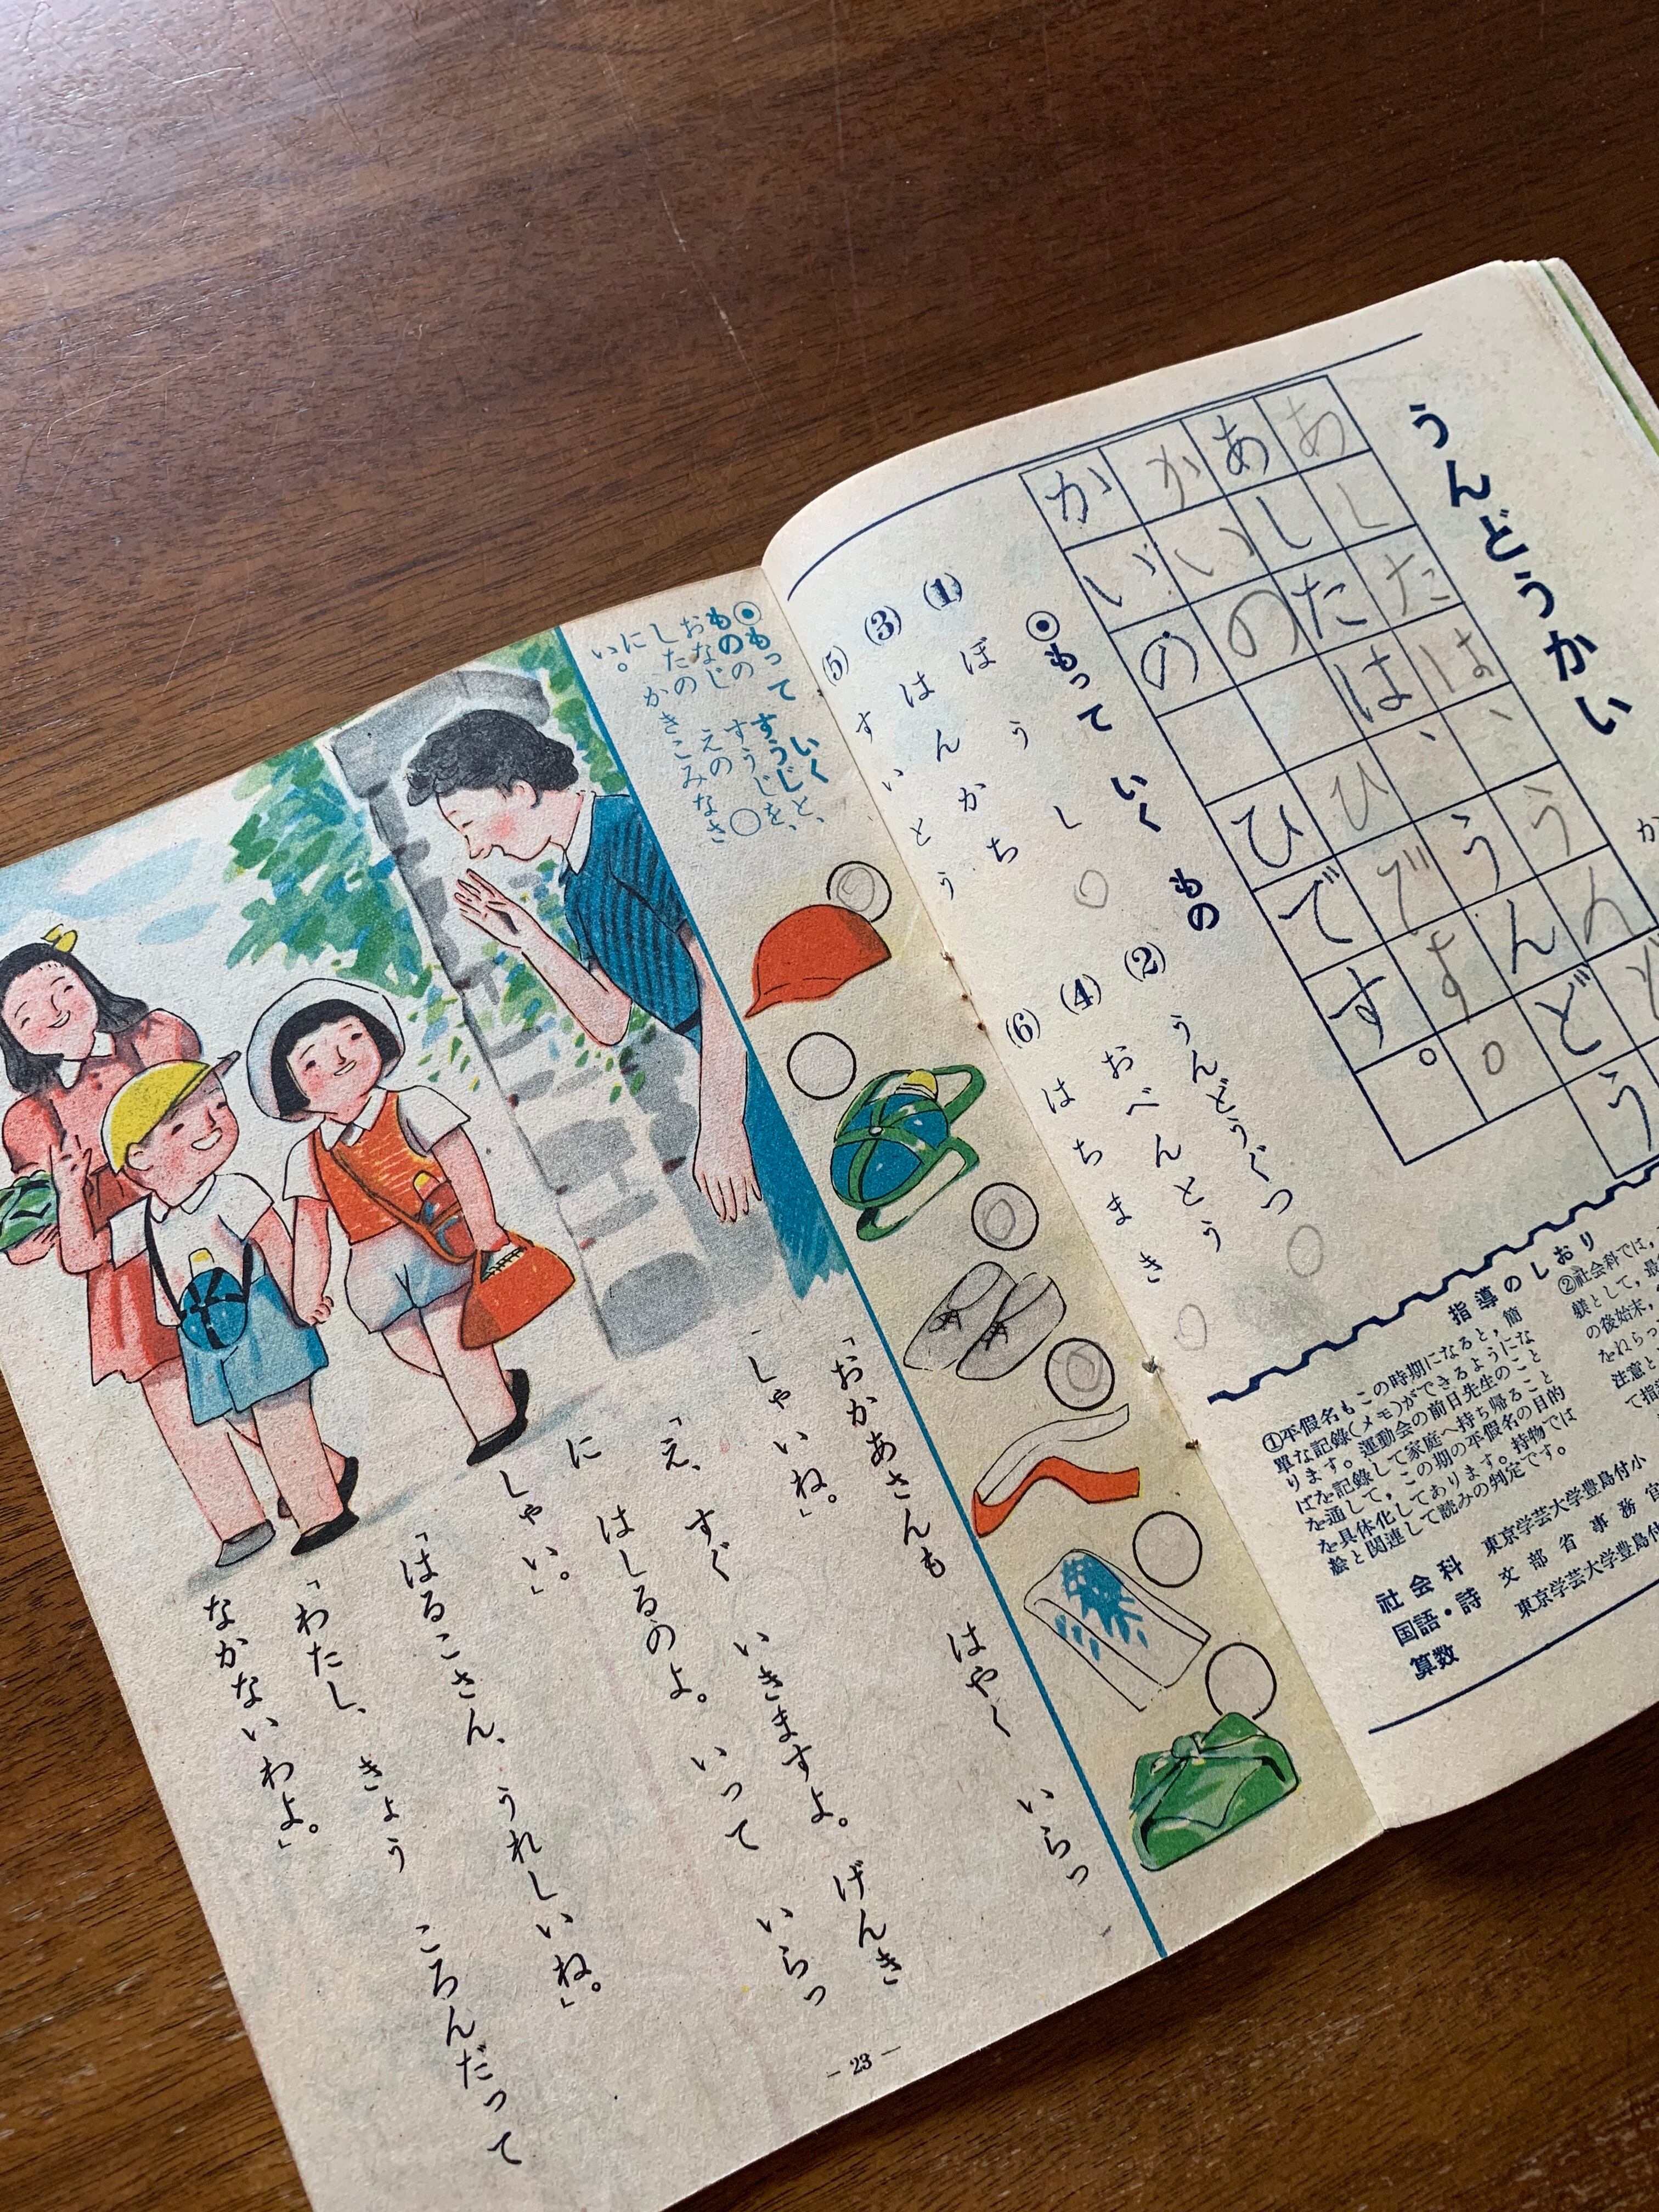 うんどうかい
あしたは、うんどう
あしたは、うんどう
かいの ひです。
かいの ひです。
◉もって いく もの
(1) ぼうし
(2) うんどうぐつ
(3) はんかち
(4) おべんとう
(5) すいとう
(6) はちまき
指導のしおり
①平假名もこの時期になると，簡
單な記錄(メモ)ができるようにな
ります。運動会の前日先生のこと
ばを記錄して家庭へ持ち帰ること
を通して，この期の平假名の目的
を具体化してあります。持物では
絵と関連して読みの判定です。
②社会科では，
躾として，最
の後始末，
をねらっ
注意と
て指
社会科 東京学芸大学豊島付小
国語・詩 文部省事務官
算数 東京学芸大学豊島付
◉もって いく
ものの すうじと、
おなじ すうじを、
したの えの ○
に かきこみなさ
い。
「おかあさんも はやく いらっ
しゃいね。」
「え、すぐ いきますよ。げんき
に はしるのよ。いって いらっ
しゃい。」
「はるこさん、うれしいね。」
「わたし、きょう ころんだって
なかないわよ。」
― 23 ―